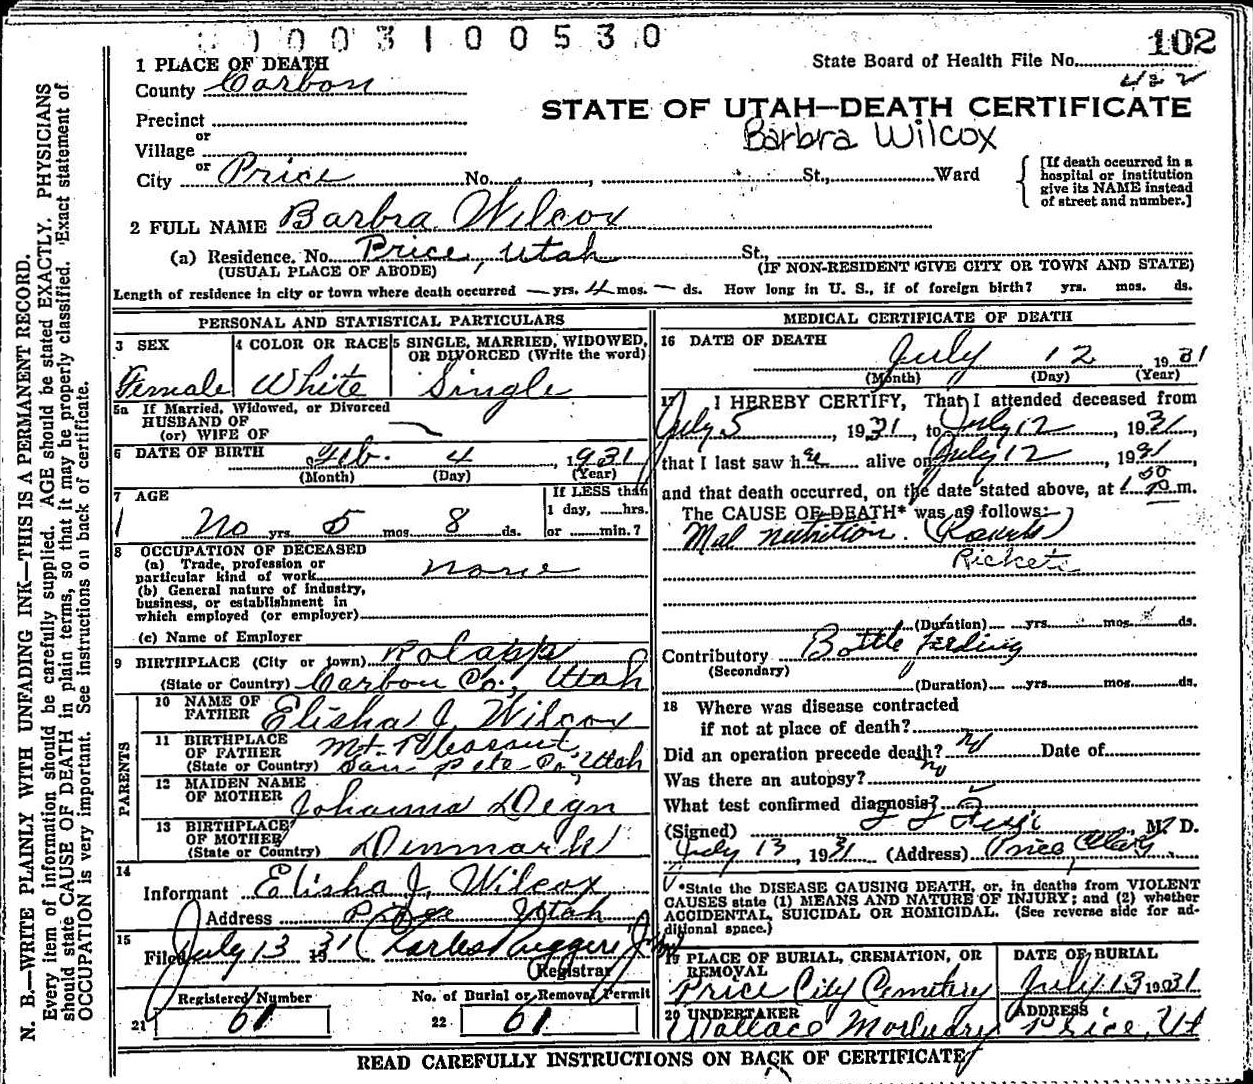 1003100530
102
State Board of Health File No.
422
1 PLACE OF DEATH
County Carbon
STATE OF UTAH—DEATH CERTIFICATE
Barbra Wilcox
Precinct
or
Village
or
City Price No. St., Ward
[If death occurred in a hospital or institution give its NAME instead of street and number.]
2 FULL NAME Barbra Wilcox
(a) Residence. No. Price, Utah St.,
(USUAL PLACE OF ABODE) (IF NON-RESIDENT GIVE CITY OR TOWN AND STATE)
Length of residence in city or town where death occurred — yrs. 4 mos. — ds. How long in U. S., if of foreign birth? yrs. mos. ds.
PERSONAL AND STATISTICAL PARTICULARS
3 SEX
Female
4 COLOR OR RACE
White
5 SINGLE, MARRIED, WIDOWED, OR DIVORCED (Write the word)
Single
5a If Married, Widowed, or Divorced
HUSBAND OF
(or) WIFE OF
6 DATE OF BIRTH Feb. 4, 1931
(Month) (Day) (Year)
7 AGE
No yrs. 5 mos. 8 ds.
If LESS than
1 day, ....hrs.
or ....min.?
8 OCCUPATION OF DECEASED
(a) Trade, profession or
particular kind of work None
(b) General nature of industry,
business, or establishment in
which employed (or employer)
(c) Name of Employer
9 BIRTHPLACE (City or town) Rolapp
(State or Country) Carbon Co., Utah
PARENTS
10 NAME OF
FATHER Elisha J. Wilcox
11 BIRTHPLACE
OF FATHER
(State or Country)
Mt. Pleasant,
San Pete Co, Utah
12 MAIDEN NAME
OF MOTHER Johanna Degn
13 BIRTHPLACE
OF MOTHER
(State or Country) Denmark
14
Informant Elisha J. Wilcox
Address Price Utah
15
Filed July 13 1931
Registrar
Registered Number
21 61
No. of Burial or Removal Permit
22 61
MEDICAL CERTIFICATE OF DEATH
16 DATE OF DEATH
July 12 1931
(Month) (Day) (Year)
17 I HEREBY CERTIFY, That I attended deceased from
July 5, 1931, to July 12, 1931,
that I last saw her alive on July 12, 1931
and that death occurred, on the date stated above, at m.
The CAUSE OF DEATH* was as follows:
Mal nutrition.
Rickets
(Duration) yrs. mos. ds.
Contributory Bottle Feeding
(Secondary)
(Duration) yrs. mos. ds.
18 Where was disease contracted
if not at place of death?
Did an operation precede death? no Date of
Was there an autopsy? no
What test confirmed diagnosis?
(Signed) M. D.
July 13, 1931 (Address) Price, Utah
*State the DISEASE CAUSING DEATH, or, in deaths from VIOLENT
CAUSES state (1) MEANS AND NATURE OF INJURY; and (2) whether
ACCIDENTAL, SUICIDAL OR HOMICIDAL. (See reverse side for ad-
ditional space.)
19 PLACE OF BURIAL, CREMATION, OR
REMOVAL
Price City Cemetery
DATE OF BURIAL
July 13 1931
20 UNDERTAKER
Wallace
ADDRESS
Price, Ut
READ CAREFULLY INSTRUCTIONS ON BACK OF CERTIFICATE
N. B.—WRITE PLAINLY WITH UNFADING INK—THIS IS A PERMANENT RECORD.
Every item of information should be carefully supplied. AGE should be stated EXACTLY. PHYSICIANS
should state CAUSE OF DEATH in plain terms, so that it may be properly classified. Exact statement of
OCCUPATION is very important. See instructions on back of certificate.